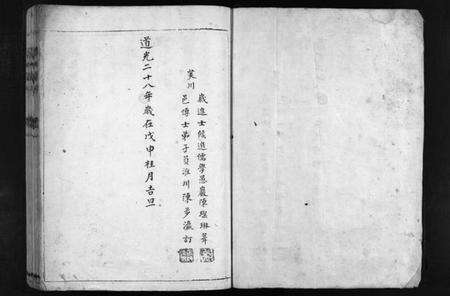 歲進士候選儒學邑巖陳瑆琳纂
寅川
邑博士弟子員淮川陳多瀛訂
道光二十八年歲在戊申桂月吉旦